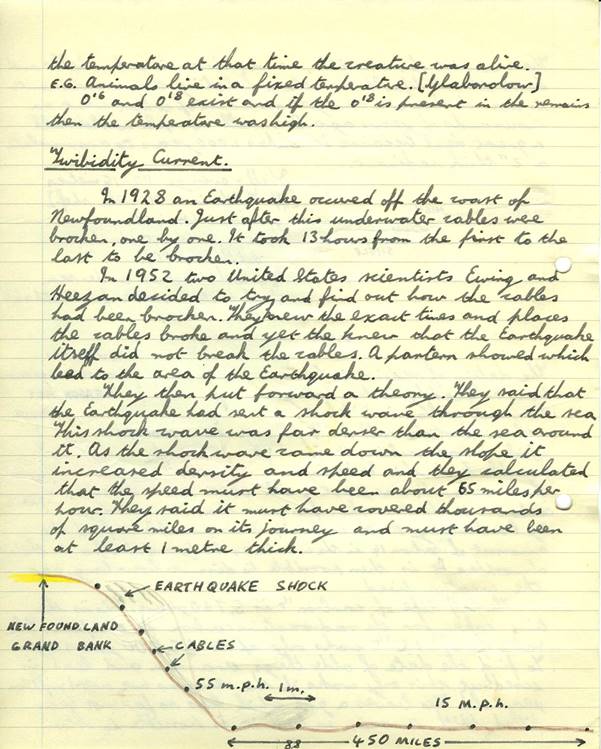 the temperature at that time the creature was alive.
E.G. Animals live in a fixed temperative. [Yglaborolow]
O'6 and O'8 exist and if the O'8 is present in the remains
then the temperature was high.
Twibidity Current.
In 1928 an Earthquake occured off the coast of
Newfoundland. Just after this underwater cables were
brocken, one by one. It took 13 hours from the first to the
last to be brocken.
In 1952 two United States scientists Ewing and
Heezan decided to try and find out how the cables
had been brocken. They knew the exact times and places
the cables broke and yet the knew that the Earthquake
itself did not break the cables. A pantern showed which
lead to the area of the Earthquake.
They then put forward a theory. They said that
the Earthquake had sent a shock wave through the sea
This shock wave was far denser than the sea around
it. As the shockwave came down the slope it
increased density and speed and they calculated
that the speed must have been about 55 miles per
hour. They said it must have covered thousands
of square miles on its journey and must have been
at least 1 metre thick.
EARTHQUAKE SHOCK
NEW FOUND LAND
GRAND BANK
CABLES
55 m.p.h.
1m.
15 M.p.h.
450 MILES